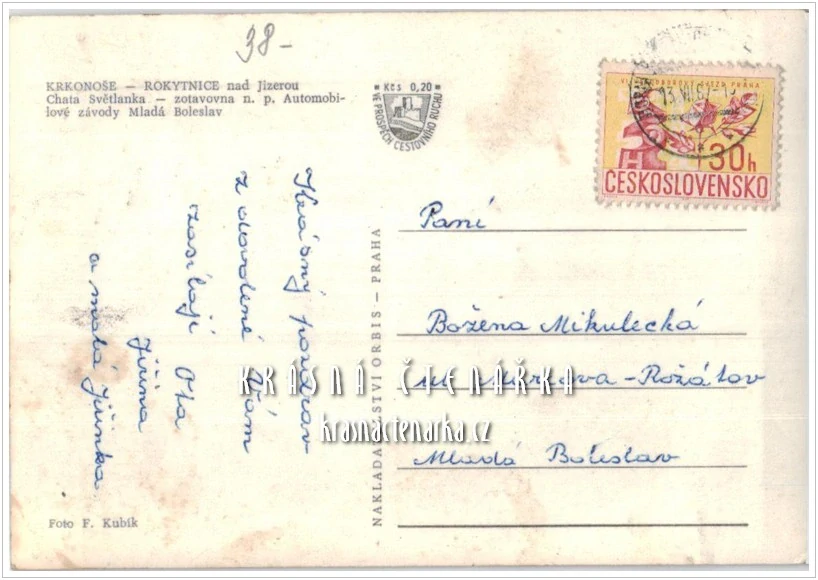 38-
KRKONOŠE — ROKYTNICE nad Jizerou
Chata Světlanka — zotavovna n. p. Automobi-
lové závody Mladá Boleslav
Kčs 0,20
VE PROSPĚCH CESTOVNÍHO RUCHU
PRAHA
13.VI.67-15
30h
ČESKOSLOVENSKO
Krásný pozdrav
z dovolené Vám
zasílají Ota
Jiřina
a malá Jiřinka
NAKLADATELSTVÍ ORBIS — PRAHA
Paní
Božena Mikulecká
KRÁSNÁ ČTENÁŘKA
ul. -Rožátov
krasnactenarka.cz
Mladá Boleslav
Foto F. Kubík